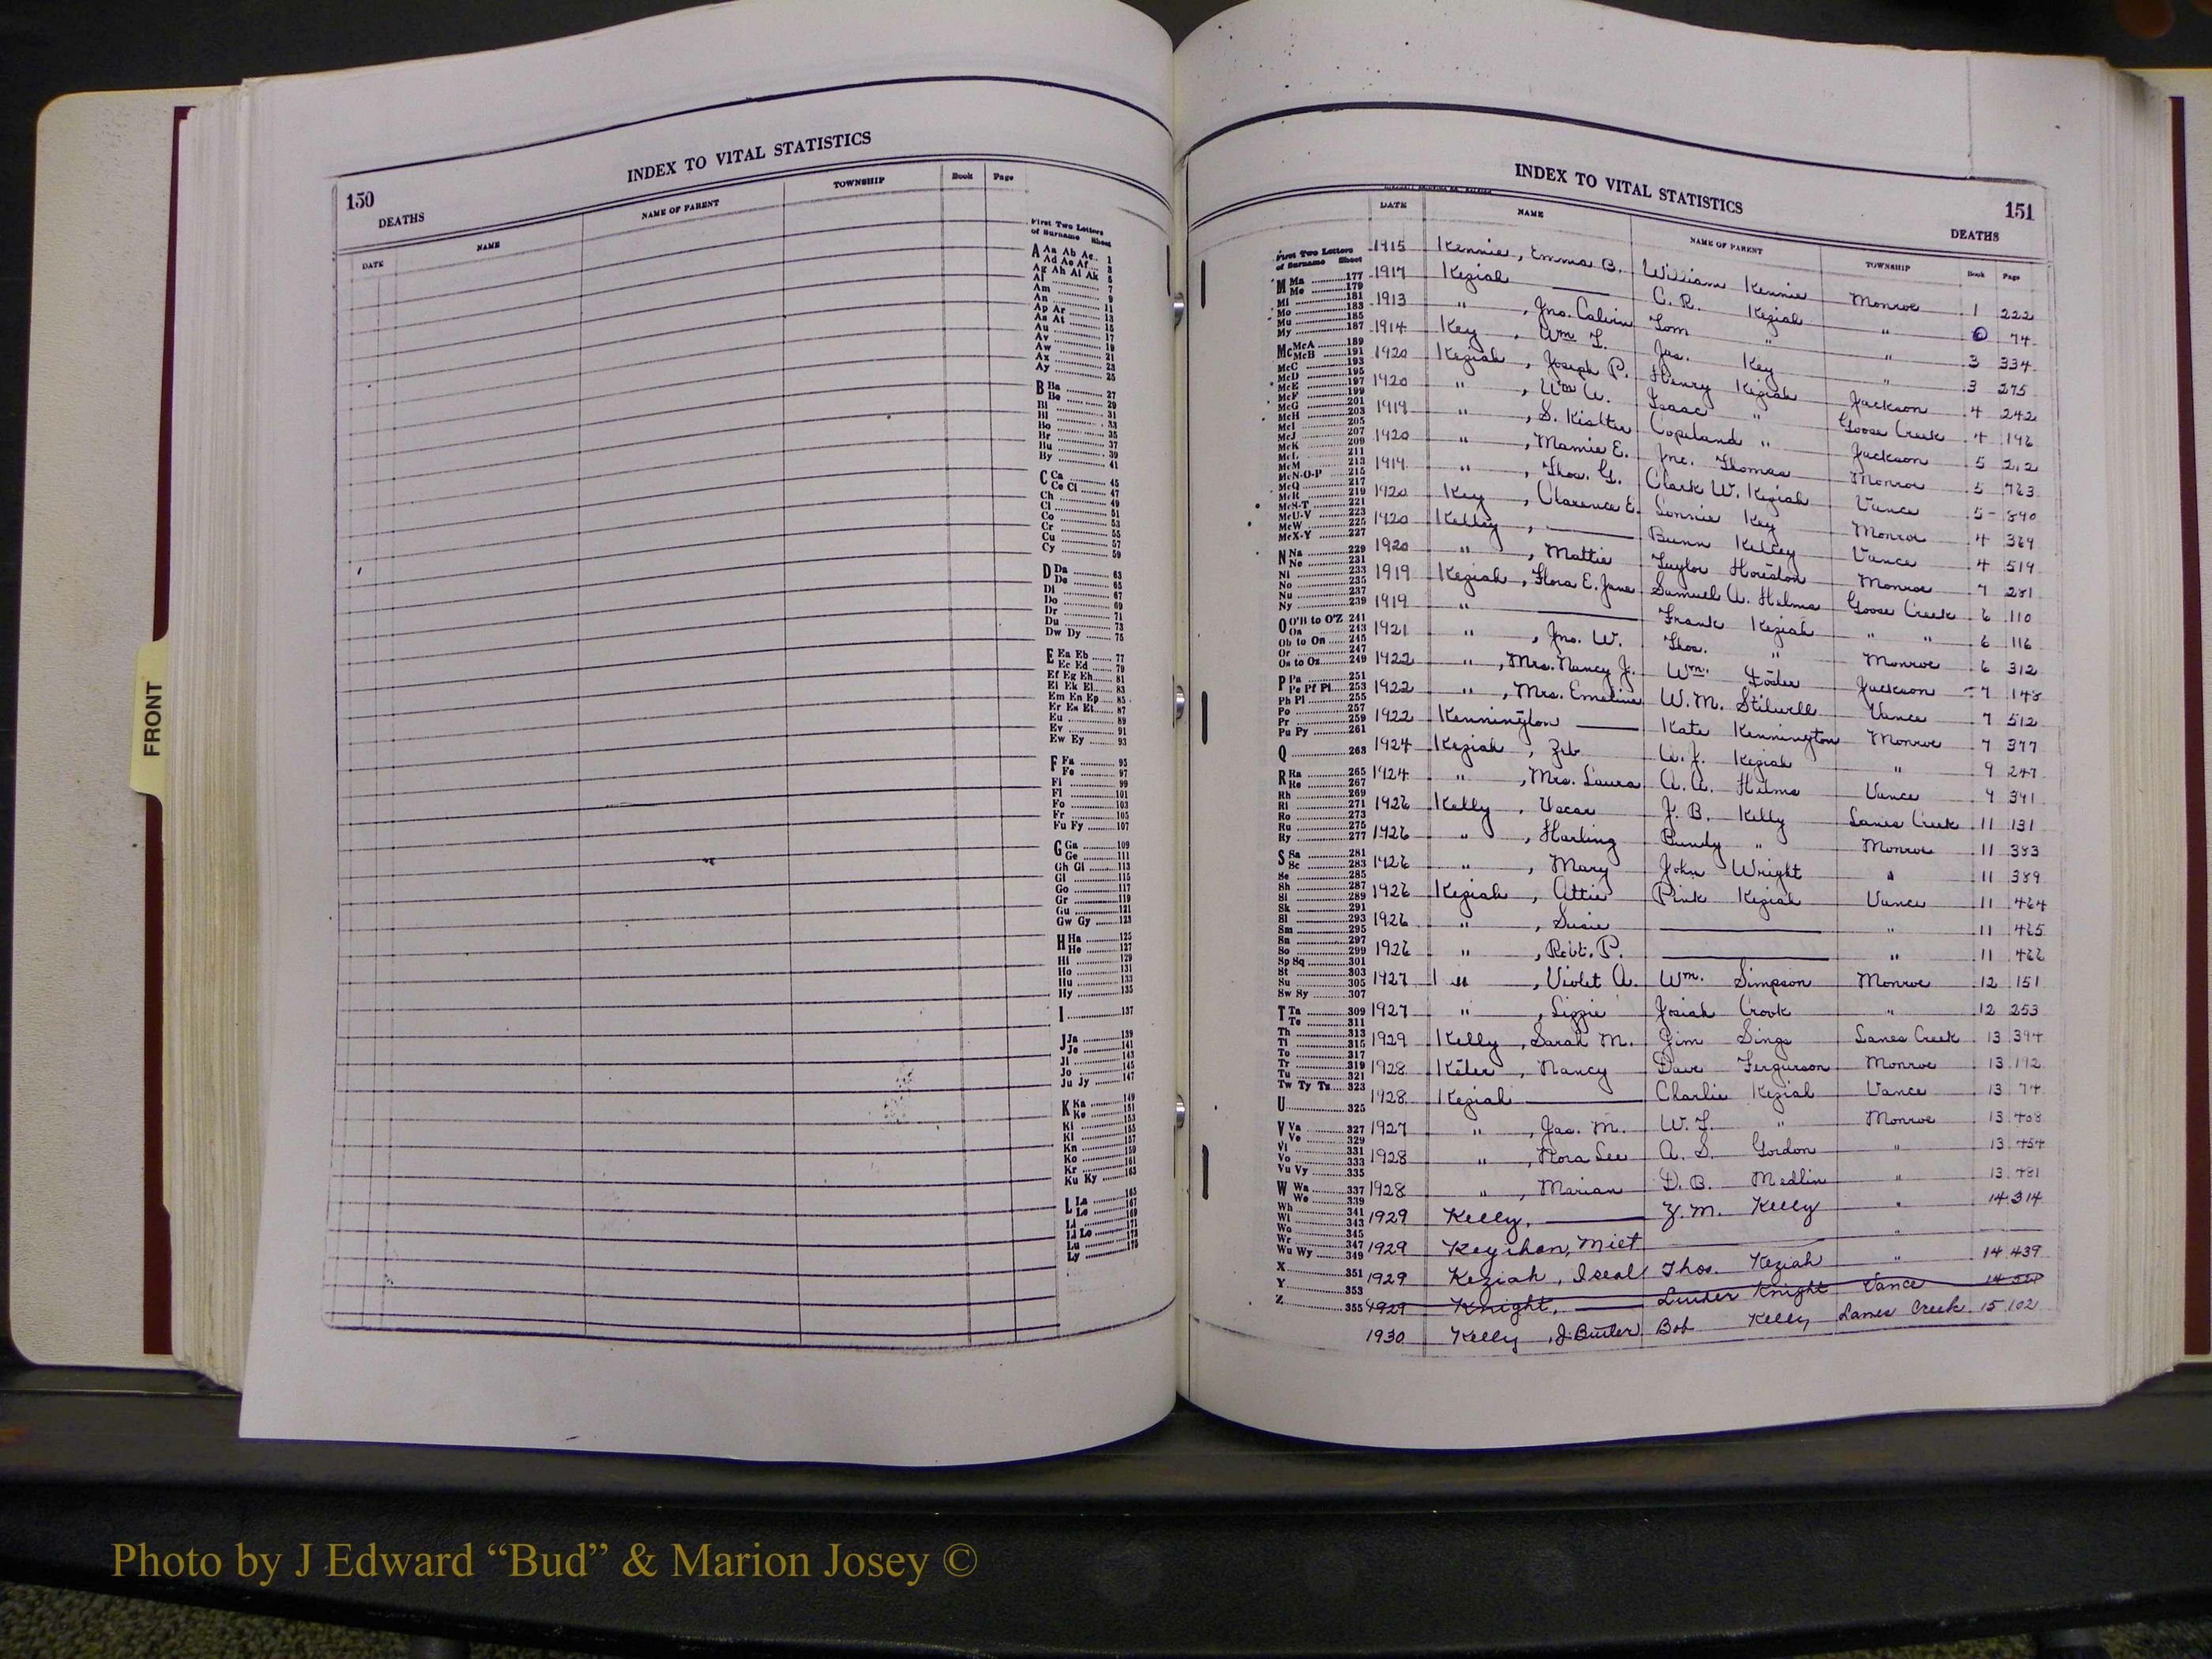 INDEX TO VITAL STATISTICS
150
DEATHS
DATE NAME NAME OF PARENT TOWNSHIP Book Page
First Two Letters
of Surname Sheet
A Aa Ab Ac 1
Ad Ae Af 3
Ag Ah Ai Ak 5
Al 7
Am 9
An 11
Ap Ar 13
As At 15
Au 17
Av 19
Aw 21
Ax 23
Ay 25
B Ba 27
Be 29
Bi 31
Bl 33
Bo 35
Br 37
Bu 39
By 41
C Ca 45
Ce Ci 47
Ch 49
Cl 51
Co 53
Cr 55
Cu 57
Cy 59
D Da 63
De 65
Di 67
Do 69
Dr 71
Du 73
Dw Dy 75
E Ea Eb 77
Ec Ed 79
Ef Eg Eh 81
Ei Ek El 83
Em En Ep 85
Er Es Et 87
Eu 89
Ev 91
Ew Ey 93
F Fa 95
Fe 97
Fi 99
Fl 101
Fo 103
Fr 105
Fu Fy 107
G Ga 109
Ge 111
Gh Gi 113
Gl 115
Go 117
Gr 119
Gu 121
Gw Gy 123
H Ha 125
He 127
Hi 129
Ho 131
Hu 133
Hy 135
I 137
J Ja 139
Je 141
Ji 143
Jo 145
Ju Jy 147
K Ka 149
Ke 151
Ki 153
Kl 155
Kn 157
Ko 159
Kr 161
Ku Ky 163
L La 165
Le 167
Li 169
Ll Lo 171
Lu 173
Ly 175
INDEX TO VITAL STATISTICS
151
DEATHS
DATE NAME NAME OF PARENT TOWNSHIP Book Page
First Two Letters
of Surname Sheet
M Ma 177
Me 179
Mi 181
Mo 183
Mu 185
My 187
Mc McA 189
McB 191
McC 193
McD 195
McE 197
McF 199
McG 201
McH 203
McI 205
McJ 207
McK 209
McL 211
McM 213
McN-O-P 215
McQ 217
McR 219
McS-T 221
McU-V 223
McW 225
McX-Y 227
N Na 229
Ne 231
Ni 233
No 235
Nu 237
Ny 239
O O'B to O'Z 241
Oa 243
Ob to On 245
Or 247
Os to Oz 249
P Pa 251
Pe Pf Pi 253
Ph Pl 255
Po 257
Pr 259
Pu Py 261
Q 263
R Ra 265
Re 267
Rh 269
Ri 271
Ro 273
Ru 275
Ry 277
S Sa 281
Sc 283
Se 285
Sh 287
Si 289
Sk 291
Sl 293
Sm 295
Sn 297
So 299
Sp Sq 301
St 303
Su 305
Sw Sy 307
T Ta 309
Te 311
Th 313
Ti 315
To 317
Tr 319
Tu 321
Tw Ty Tz 323
U 325
V Va 327
Ve 329
Vi 331
Vo 333
Vu Vy 335
W Wa 337
We 339
Wh 341
Wi 343
Wo 345
Wr 347
Wu Wy 349
X 351
Y 353
Z 355
1915 Kennie, Emma B. William Kennie Monroe 1 222
1917 Keziah — C. R. Keziah " 74
1913 ", Jno. Calvin Tom " " 3 334
1914 Key, Wm. Jas. Key " 3 275
1920 Keziah, Joseph P. Henry Keziah Jackson 4 242
1920 ", Wm. A. Isaac " Goose Creek 4
1919 ", S. Copeland " Jackson 5 212
1920 ", Mamie E. Jno. Thomas Monroe 5 763
1919 ", Thos. G. Clark W. Keziah Vance 5 890
1920 Key, Clarence E. Lonnie Key Monroe 4 369
1920 Kelley, — Bunn Kelley Vance 4 519
1920 ", Mattie Taylor Houston Monroe 7 281
1919 Keziah, Flora E. Jane Samuel A. Helms Goose Creek 6 110
1919 " — Frank Keziah " " 6 116
1921 ", Jno. W. Thos. " Monroe 6 312
1922 ", Mrs. Nancy J. Wm. Jackson 7 148
1922 ", Mrs. Emeline W. M. Stilwell Vance 7 512
1922 Kennington — Kate Kennington Monroe 7 377
1924 Keziah, Zeb A. J. Keziah " 9 247
1924 ", Mrs. Laura A. A. Helms Vance 9 341
1926 Kelly, Oscar J. B. Kelly Lanes Creek 11 131
1926 ", Harling Bundy " Monroe 11 383
1926 ", Mary John Wright " 11 389
1926 Keziah, Attie Pink Keziah Vance 11 464
1926 ", Susie — " 11 465
1926 ", Robt. P. — " 11 466
1927 ", Violet A. Wm. Simpson Monroe 12 151
1927 ", Lizzie Josiah Crook " 12 253
1929 Kelly, Sarah M. Jim Sings Lanes Creek 13 394
1928 Keter, Nancy Dave Fergurson Monroe 13 192
1928 Keziah — Charlie Keziah Vance 13 74
1927 ", Jas. M. W. T. " Monroe 13 408
1928 ", Nora Lee A. S. Gordon " 13 454
1928 ", Marian D. B. Medlin " 13 481
1929 Kelly, — Z. M. Kelly " 14 314
1929 Kezihan, Miet — " —
1929 Keziah, Iseal Thos. Keziah " 14 439
1929 Knight, — Luther Knight Vance 14
1930 Kelly, J. Butler Bob Kelly Lanes Creek 15 102
FRONT
Photo by J Edward “Bud” & Marion Josey ©